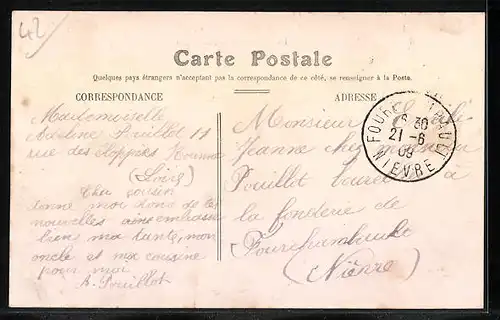 42
Carte Postale
Quelques pays étrangers n'acceptant pas la correspondance de ce côté, se renseigner à la Poste.
CORRESPONDANCE
ADRESSE
Mademoiselle
Adeline Pouillot 11
rue des
(Loire)
Cher cousin
donne moi donc de tes
nouvelles ainsi embrasse
bien ma tante, mon
oncle et ma cousine
pour moi
A. Pouillot
Monsieur
Jeanne chez monsieur
Pouillot à
la fonderie de
Fourchambault
(Nièvre)
6 30
21-6
09
NIEVRE